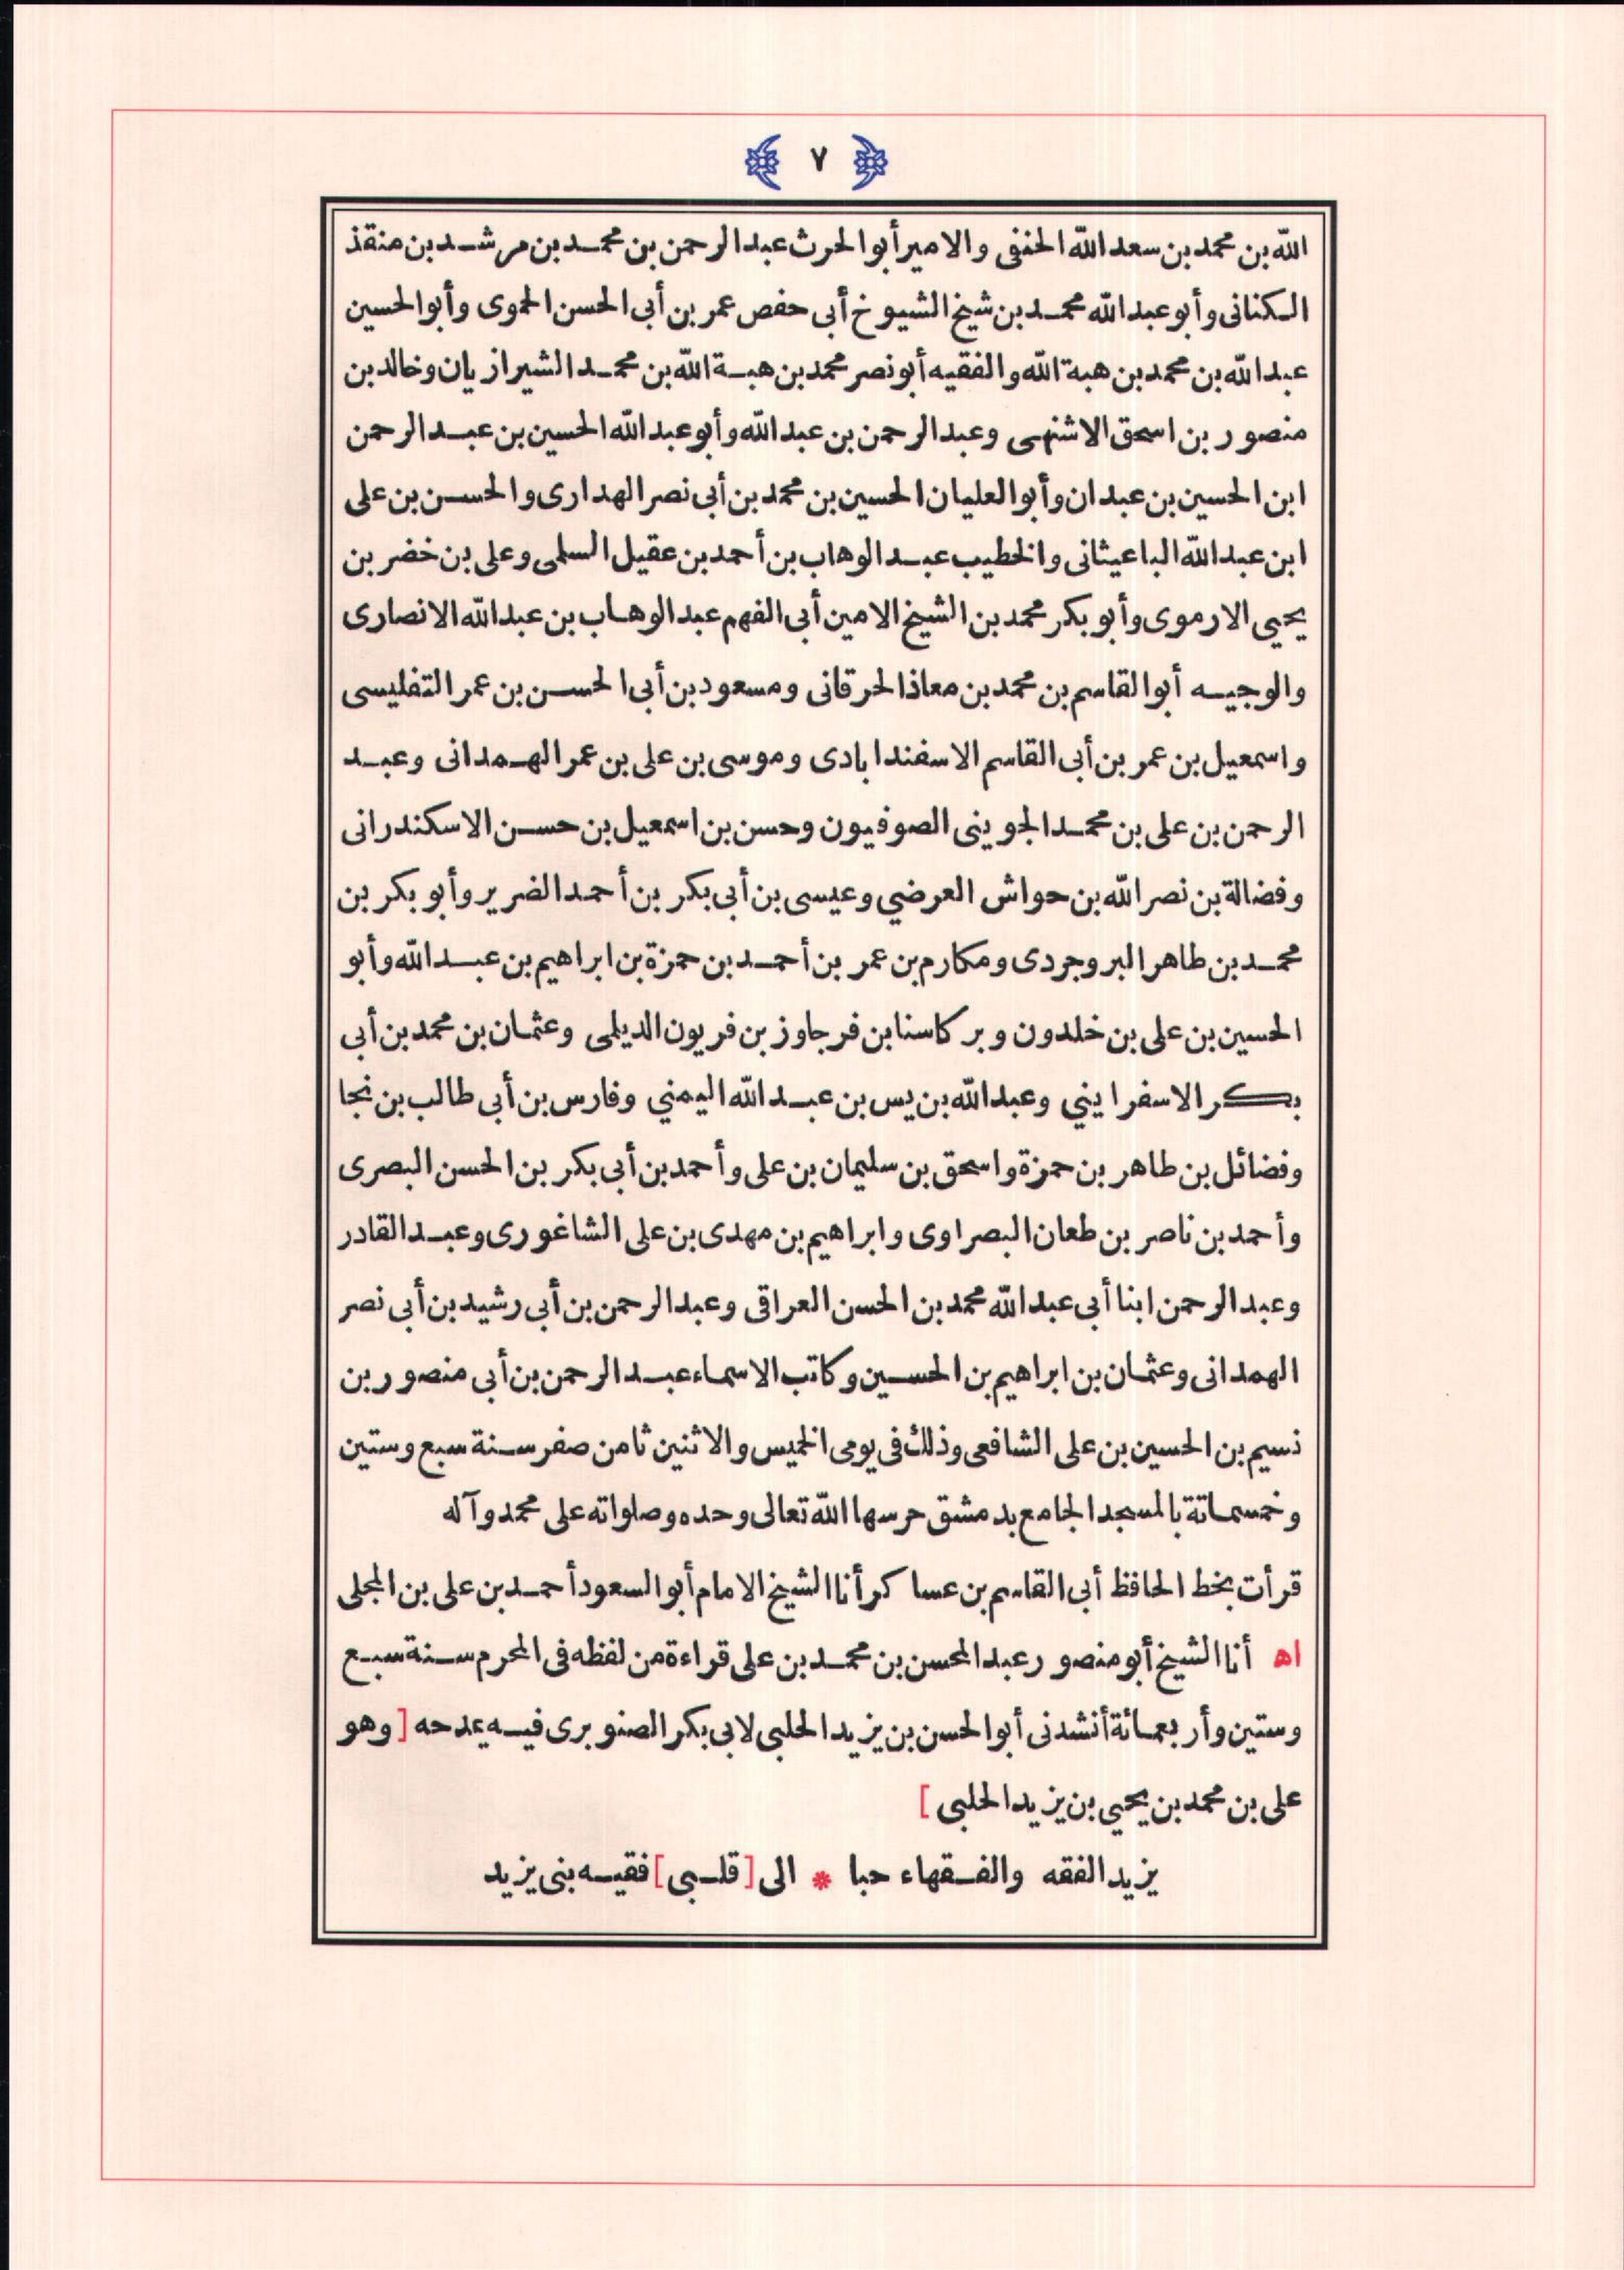 ٧
الله بن محمد بن سعد الله الحنفى والامير أبوالحرث عبدالرحمن بن محمد بن مرشد بن منقذ
الكنانى وأبو عبدالله محمد بن شيخ الشيوخ أبى حفص عمر بن أبى الحسن الحموى وأبوالحسين
عبدالله بن محمد بن هبة الله والفقيه أبونصر محمد بن هبة الله بن محمد الشيرازيان وخالد بن
منصور بن اسحق الاشنهى وعبدالرحمن بن عبدالله وأبو عبدالله الحسين بن عبدالرحمن
ابن الحسين بن عبدان وأبوالعليان الحسين بن محمد بن أبى نصر الهدارى والحسن بن على
ابن عبدالله الباعيثانى والخطيب عبدالوهاب بن أحمد بن عقيل السلمى وعلى بن خضر بن
يحيى الارموى وأبو بكر محمد بن الشيخ الامين أبى الفهم عبدالوهاب بن عبدالله الانصارى
والوجيه أبوالقاسم بن محمد بن معاذ الحرقانى ومسعود بن أبى الحسن بن عمر التفليسى
واسمعيل بن عمر بن أبى القاسم الاسفندابادى وموسى بن على بن عمر الهمدانى وعبد
الرحمن بن على بن محمد الجوينى الصوفيون وحسن بن اسمعيل بن حسن الاسكندرانى
وفضالة بن نصر الله بن حواش العرضي وعيسى بن أبى بكر بن أحمد الضرير وأبو بكر بن
محمد بن طاهر البروجردى ومكارم بن عمر بن أحمد بن حمزة بن ابراهيم بن عبدالله وأبو
الحسين بن على بن خلدون وبركاسنا بن فرجاوز بن فريون الديلمى وعثمان بن محمد بن أبى
بكر الاسفرايني وعبدالله بن يس بن عبدالله اليمني وفارس بن أبى طالب بن نجا
وفضائل بن طاهر بن حمزة واسحق بن سليمان بن على وأحمد بن أبى بكر بن الحسن البصرى
وأحمد بن ناصر بن طعان البصراوى وابراهيم بن مهدى بن على الشاغورى وعبدالقادر
وعبدالرحمن ابنا أبى عبدالله محمد بن الحسن العراقى وعبدالرحمن بن أبى رشيد بن أبى نصر
الهمدانى وعثمان بن ابراهيم بن الحسين وكاتب الاسماء عبدالرحمن بن أبى منصور بن
نسيم بن الحسين بن على الشافعى وذلك فى يومى الخميس والاثنين ثامن صفر سنة سبع وستين
وخمسمائة بالمسجد الجامع بدمشق حرسها الله تعالى وحده وصلواته على محمد وآله
قرأت بخط الحافظ أبى القاسم بن عساكر أنا الشيخ الامام أبوالسعود أحمد بن على بن المجلى
اه أنا الشيخ أبو منصور عبدالمحسن بن محمد بن على قراءة من لفظه فى المحرم سنة سبع
وستين وأربعمائة أنشدنى أبوالحسن بن يزيد الحلبى لابى بكر الصنوبرى فيه يمدحه [ وهو
على بن محمد بن يحيى بن يزيد الحلبى ]
يزيد الفقه والفقهاء حبا * الى [ قلبى ] فقيه بنى يزيد